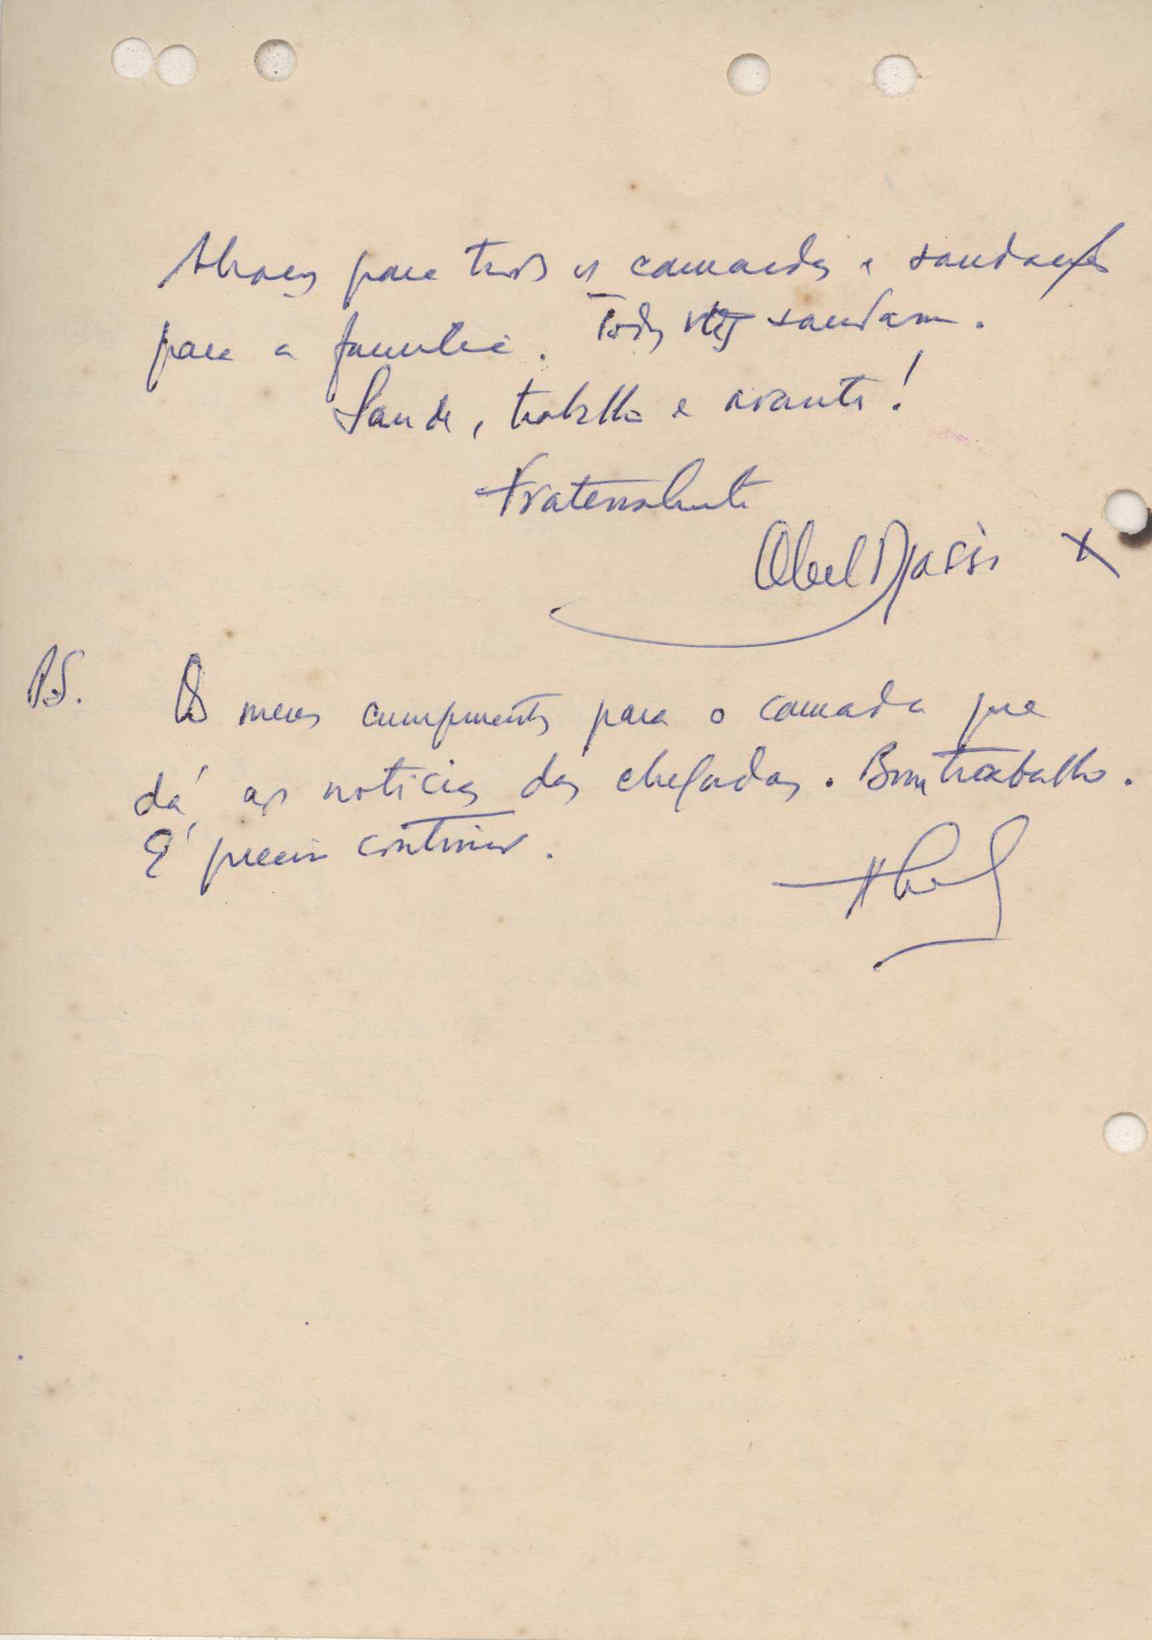 Abraços para todos os camaradas e saudações
para a família. Todos vos saudam.
Saude, trabalho e avante!
Fraternalmente
Abel Djassi x
P.S. Os meus cumprimentos para o camarada que
dá as noticias das chegadas. Bom trabalho.
É preciso continuar.
Abel